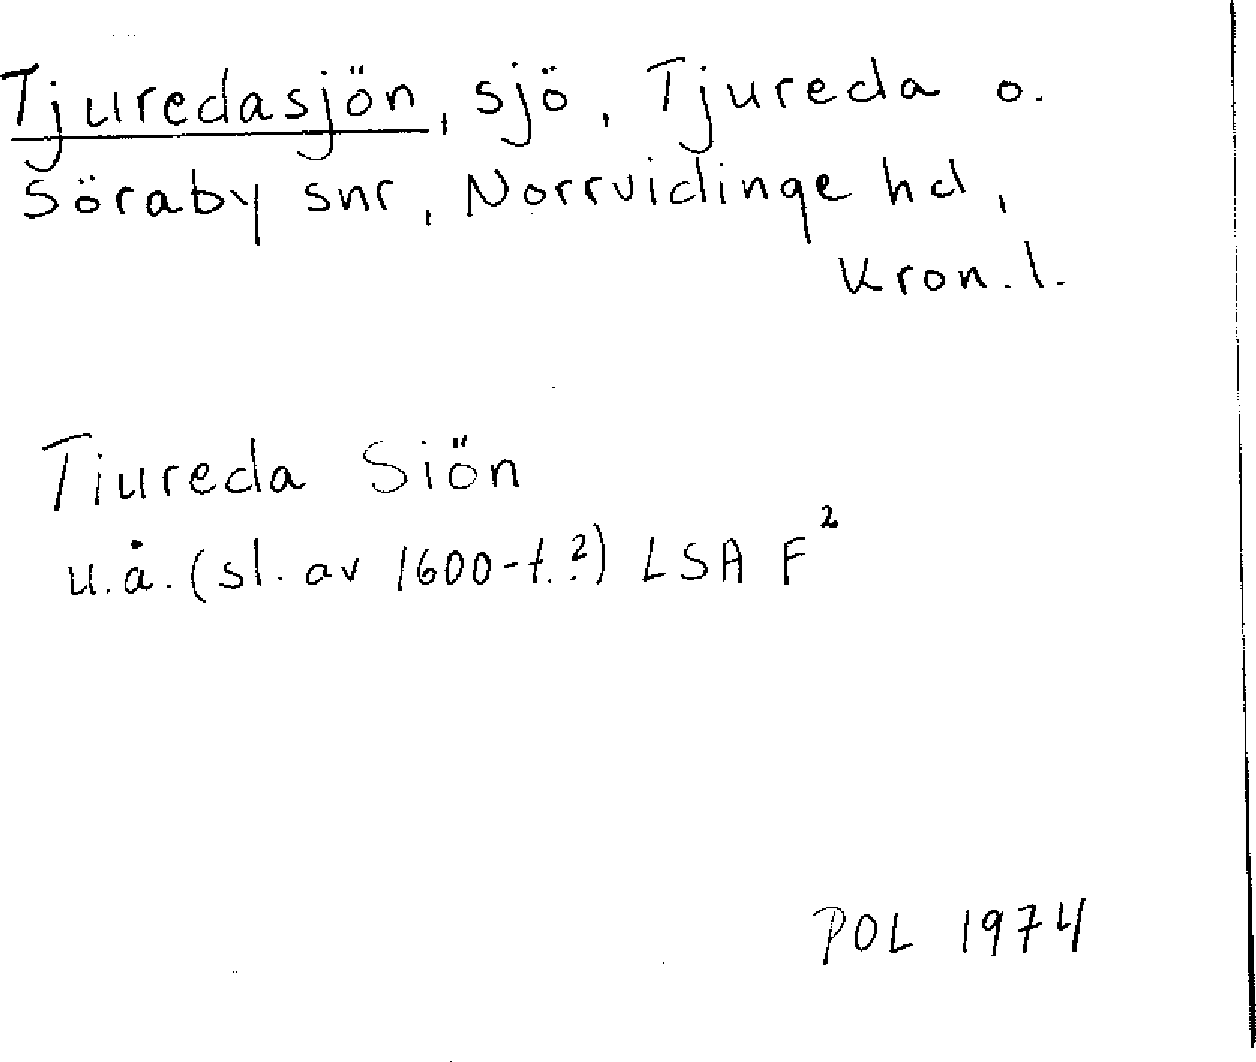 Tjuredasjön, sjö, Tjureda o.
Söraby snr, Norrvidinge hd,
Kron. l.
Tiureda Siön
u.å. (sl. av 1600-t.?) LSA F²
POL 1974